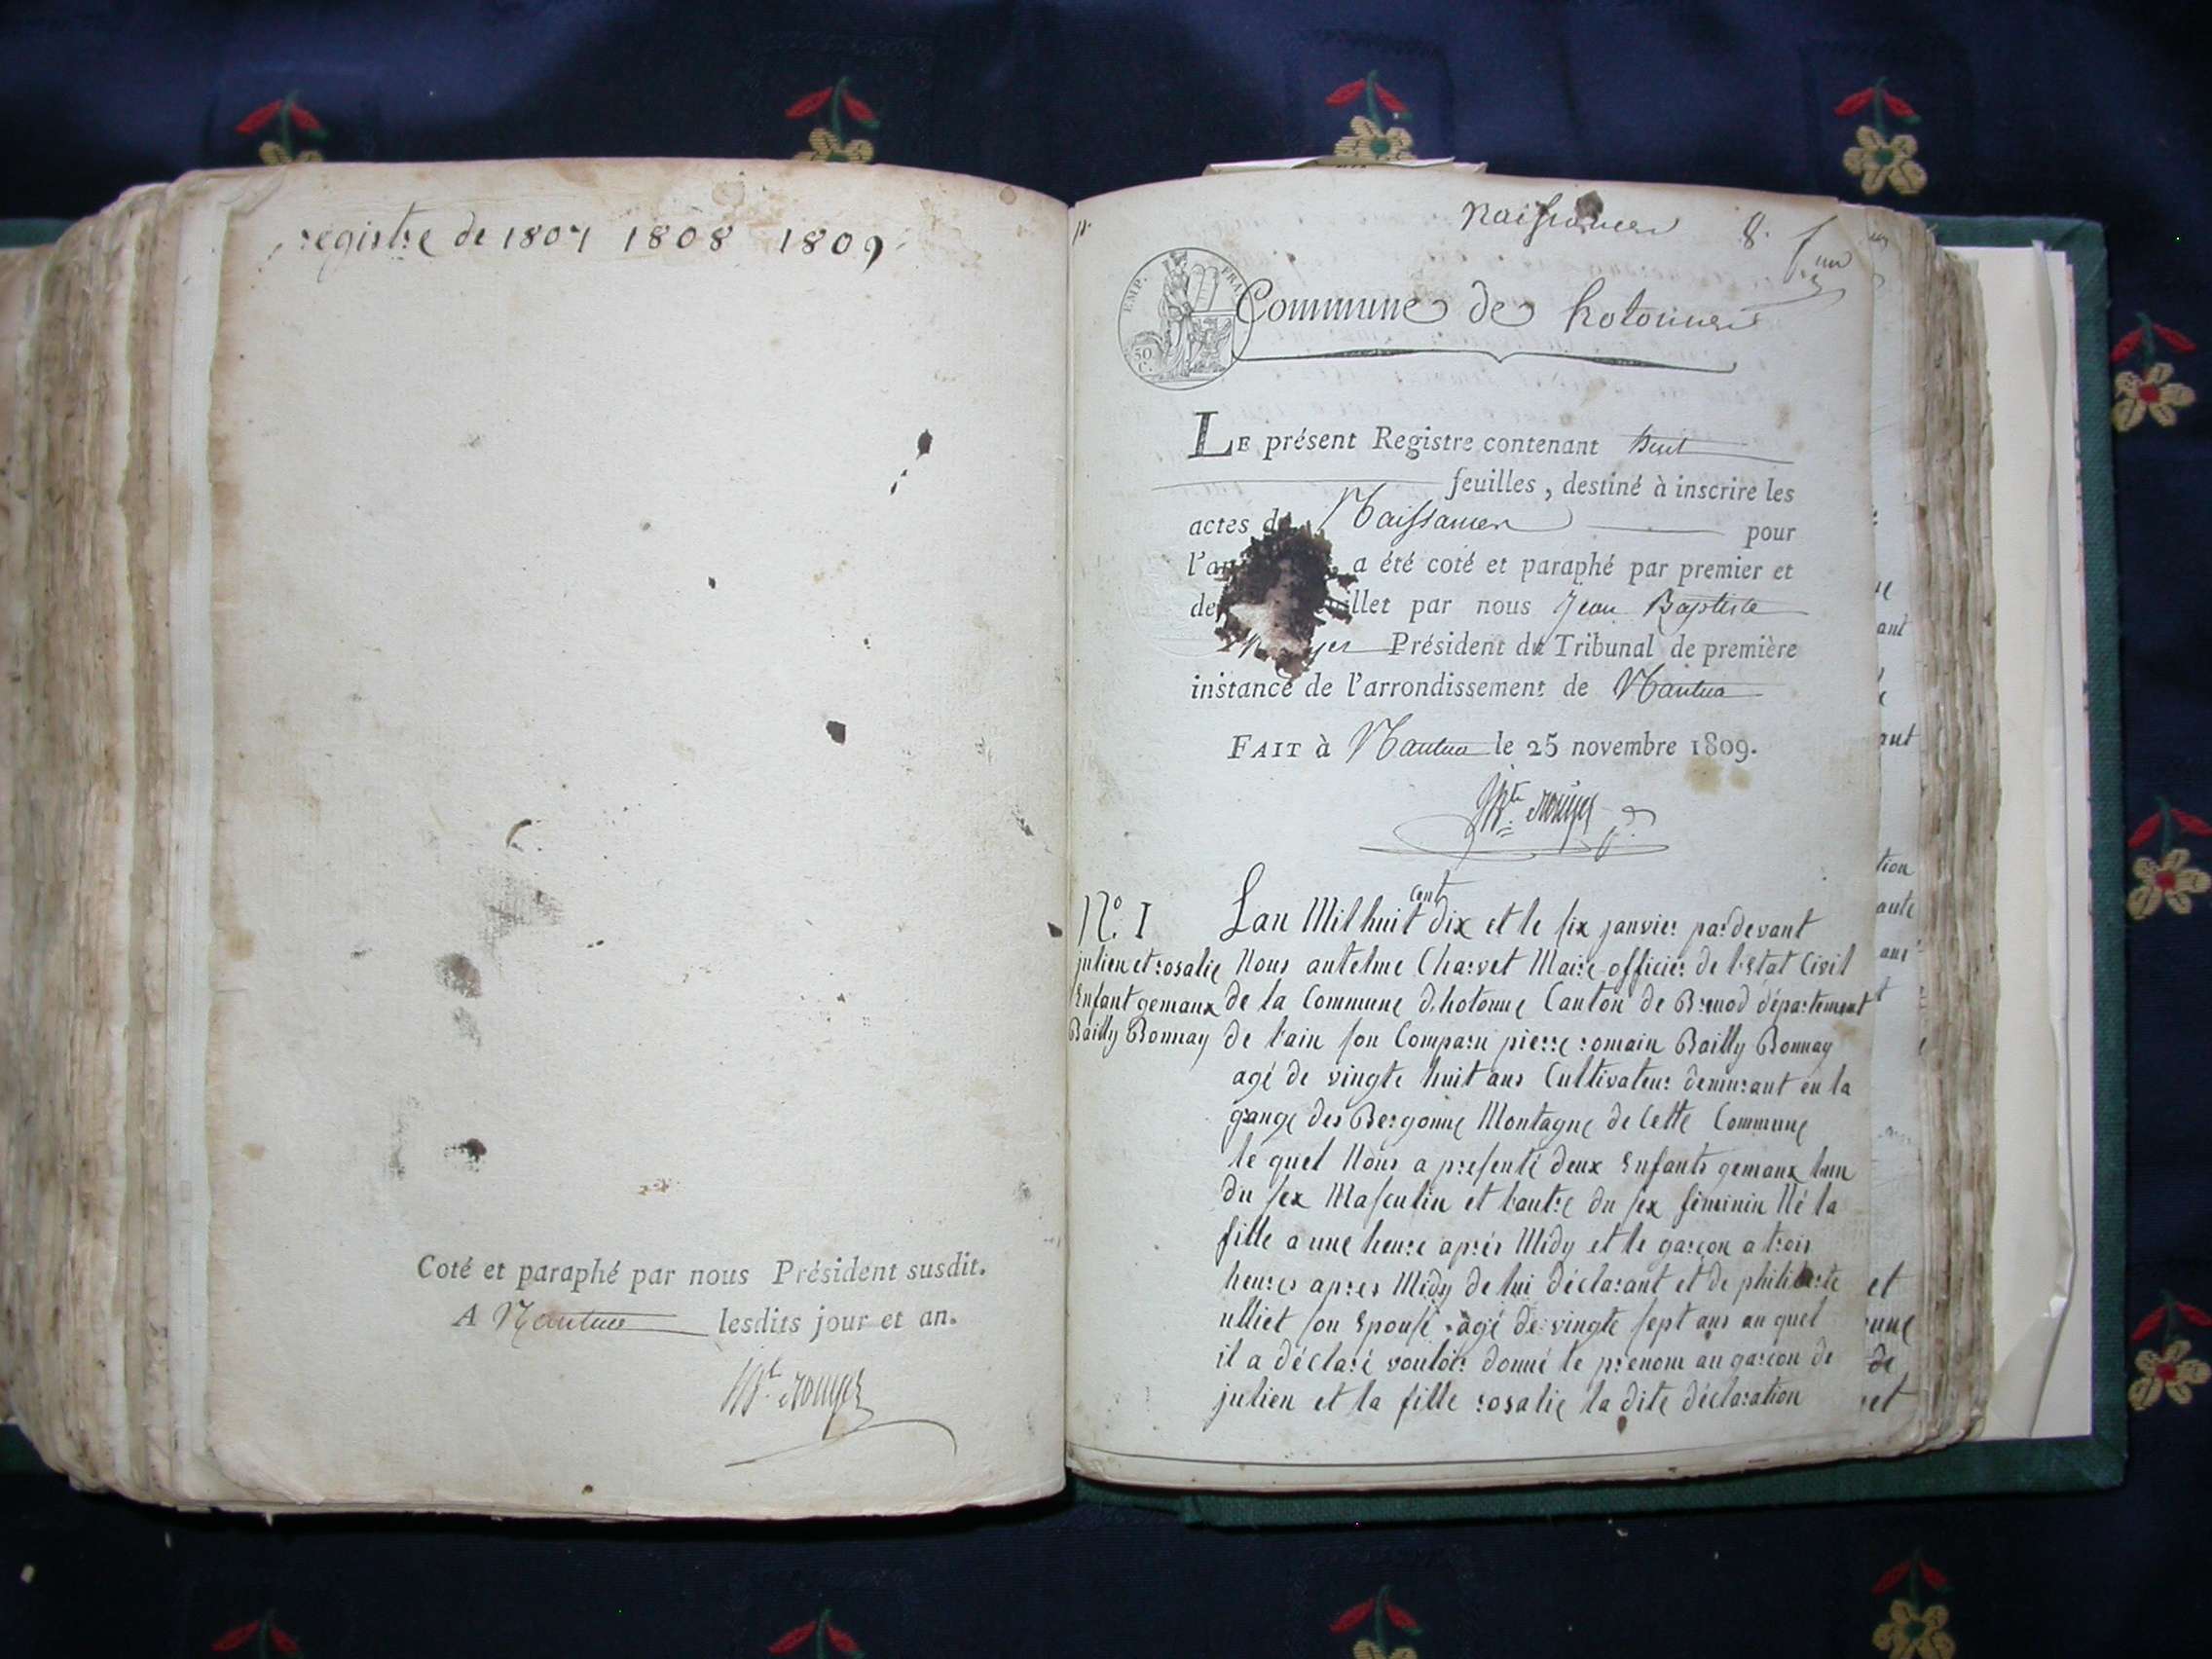 registre de 1807 1808 1809
Coté et paraphé par nous Président susdit.
A Nantua lesdits jour et an.
JBte Rouyer
Naissances 8. f.
un
EMP. FRA
50 C.
Commune de hotonnes
LE présent Registre contenant huit
feuilles, destiné à inscrire les
actes de Naissances pour
l'an a été coté et paraphé par premier et
de illet par nous Jean Baptiste
Président du Tribunal de première
instance de l'arrondissement de Nantua
FAIT à Nantua le 25 novembre 1809.
JBte Rouyer
N.º I
julien et rosalie
Enfant gemaux
Bailly Bonnay
Lan Mil huit cent dix et le six janvier pardevant
Nous antelme Charvet Maire officier de l'Etat Civil
de la Commune d'hotonne Canton de Brenod département
de l'ain son Comparu pierre romain Bailly Bonnay
agé de vingte huit ans Cultivateur demeurant en la
grange des Bergonne Montagne de Cette Commune
le quel Nous a presenté deux Enfants gemaux lun
du sex Masculin et l'autre du sex féminin Né la
fille a une heure aprés Midy et le garçon a trois
heures apres Midy de lui déclarant et de philiberte
ulliet son Epouse agé de vingte sept ans au quel
il a déclaré vouloir donné le prenom au garçon de
julien et la fille rosalie la dite déclaration